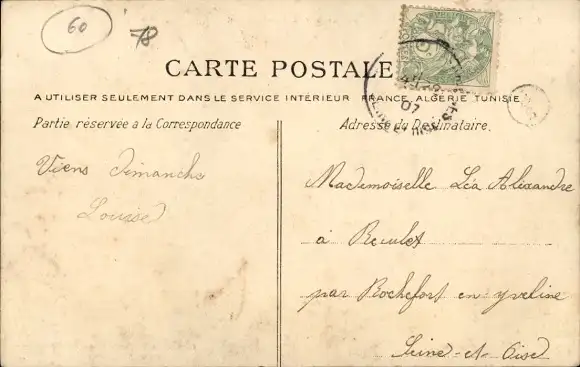 60
78
CARTE POSTALE
A UTILISER SEULEMENT DANS LE SERVICE INTÉRIEUR FRANCE, ALGERIE TUNISIE
Partie réservée à la Correspondance
Adresse du Destinataire.
07
Viens Dimanche
Louise
Mademoiselle Léa Alixandre
à
par Rochefort en yveline
Seine-et-Oise